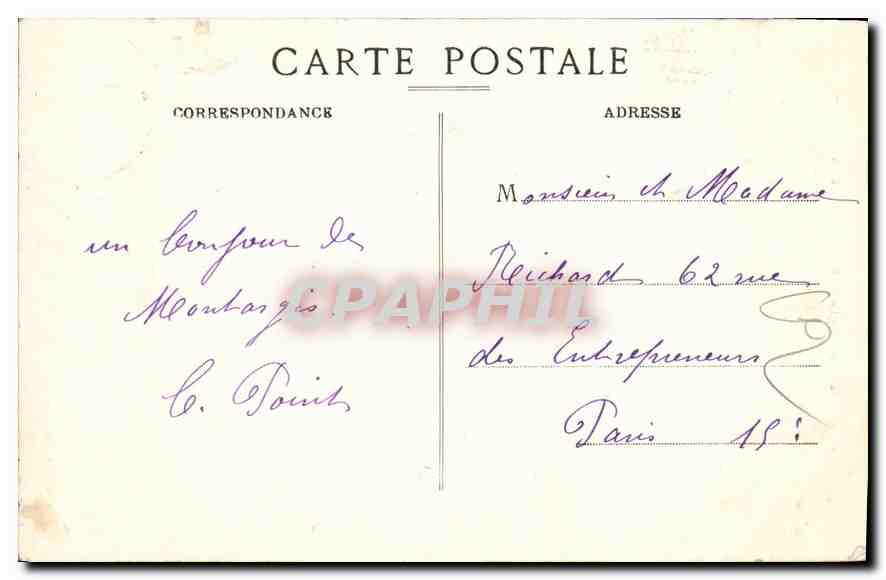 CARTE POSTALE
CORRESPONDANCE
ADRESSE
un bonjour de
Montargis.
C. Point
Monsieur et Madame
Richard 62 rue
des Entrepreneurs
Paris 15e
CPAPHIL